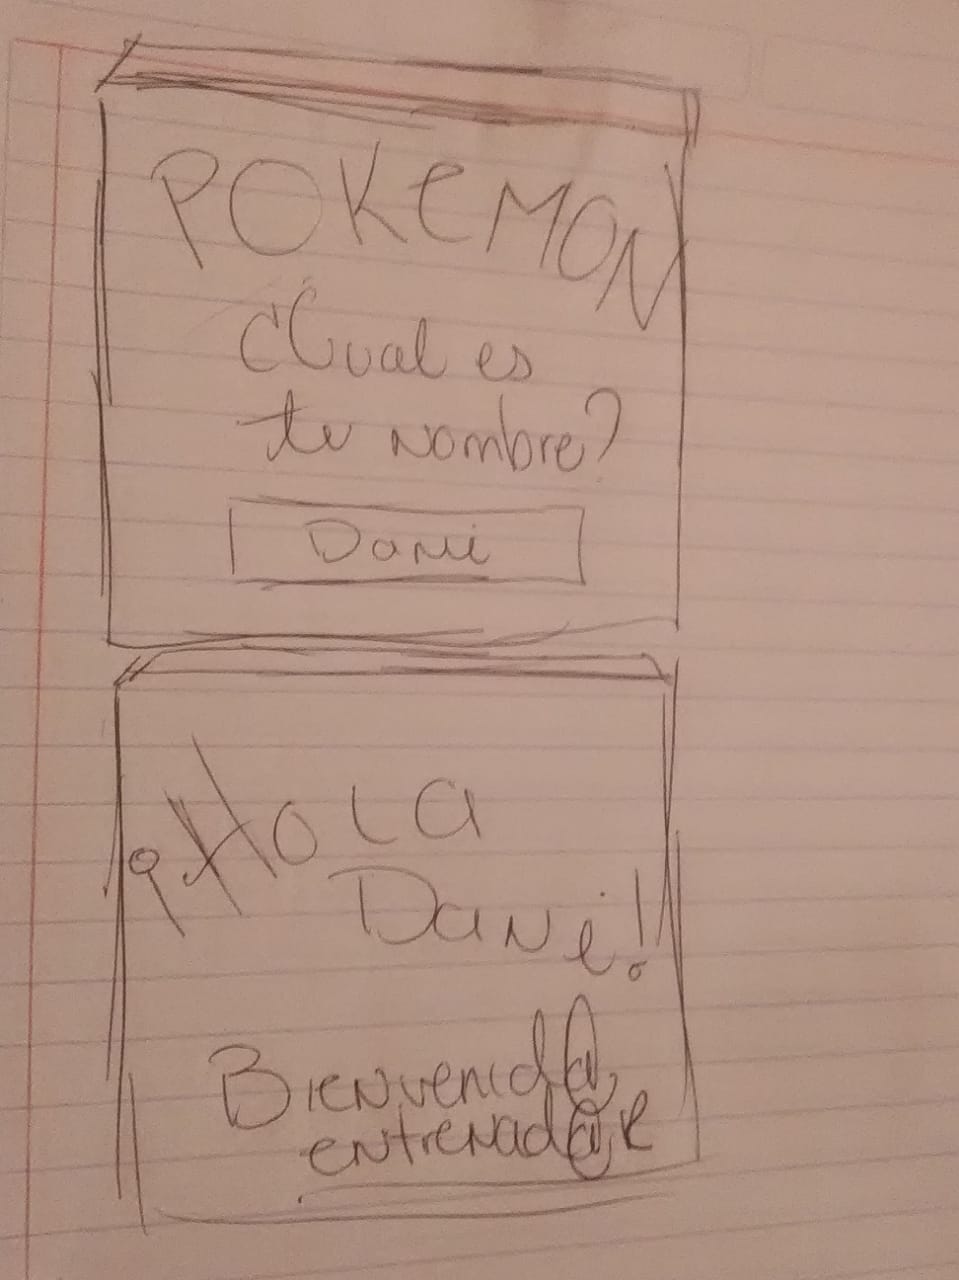 POKEMON
¿Cual es
tu nombre?
Dani
¡Hola
Dani!
Bienvenid@,
entrenad@r